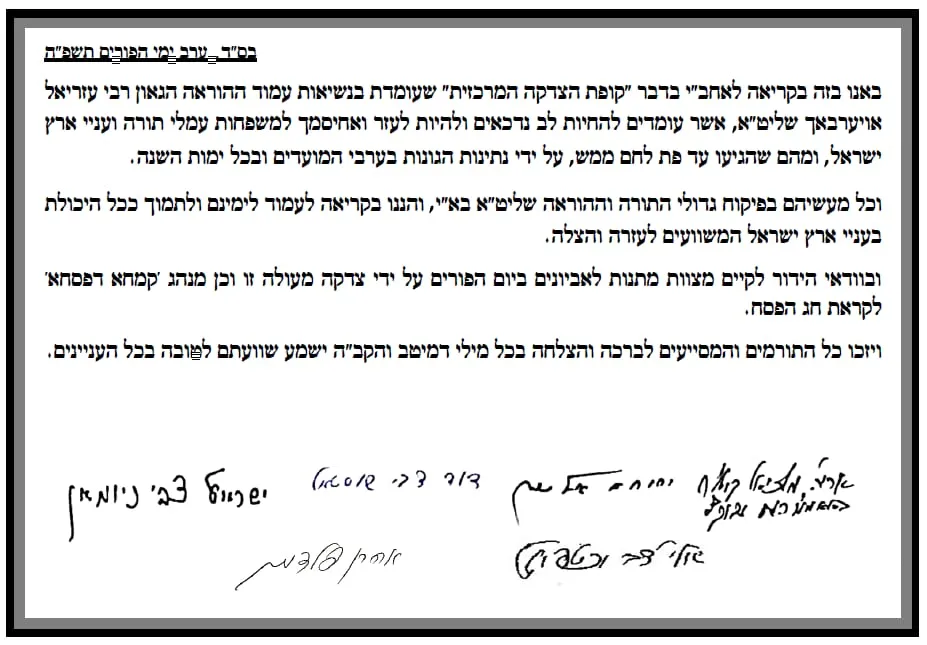 בס"ד ערב ימי הפורים תשפ"ה
באנו בזה בקריאה לאחב"י בדבר "קופת הצדקה המרכזית" שעומדת בנשיאות עמוד ההוראה הגאון רבי עזריאל
אויערבאך שליט"א, אשר עומדים להחיות לב נדכאים ולהיות לעזר ואחיסמך למשפחות עמלי תורה ועניי ארץ
ישראל, ומהם שהגיעו עד פת לחם ממש, על ידי נתינות הגונות בערבי המועדים ובכל ימות השנה.
וכל מעשיהם בפיקוח גדולי התורה וההוראה שליט"א בא"י, והננו בקריאה לעמוד לימינם ולתמוך ככל היכולת
בעניי ארץ ישראל המשוועים לעזרה והצלה.
ובוודאי הידור לקיים מצוות מתנות לאביונים ביום הפורים על ידי צדקה מעולה זו וכן מנהג 'קמחא דפסחא'
לקראת חג הפסח.
ויזכו כל התורמים והמסייעים לברכה והצלחה בכל מילי דמיטב והקב"ה ישמע שוועתם לטובה בכל העניינים.
דוד צבי ישראל צבי ניומאן
אהרן פלדמן